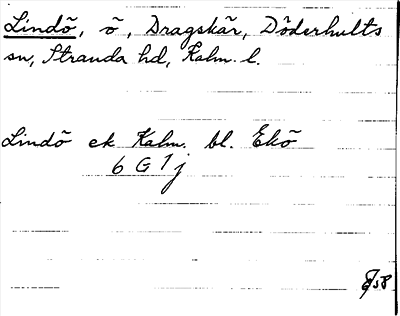 Lindö, ö, Dragskär, Döderhults
sn, Stranda hd, Kalm. l.
Lindö ek Kalm. bl. Ekö
6 G 1 j